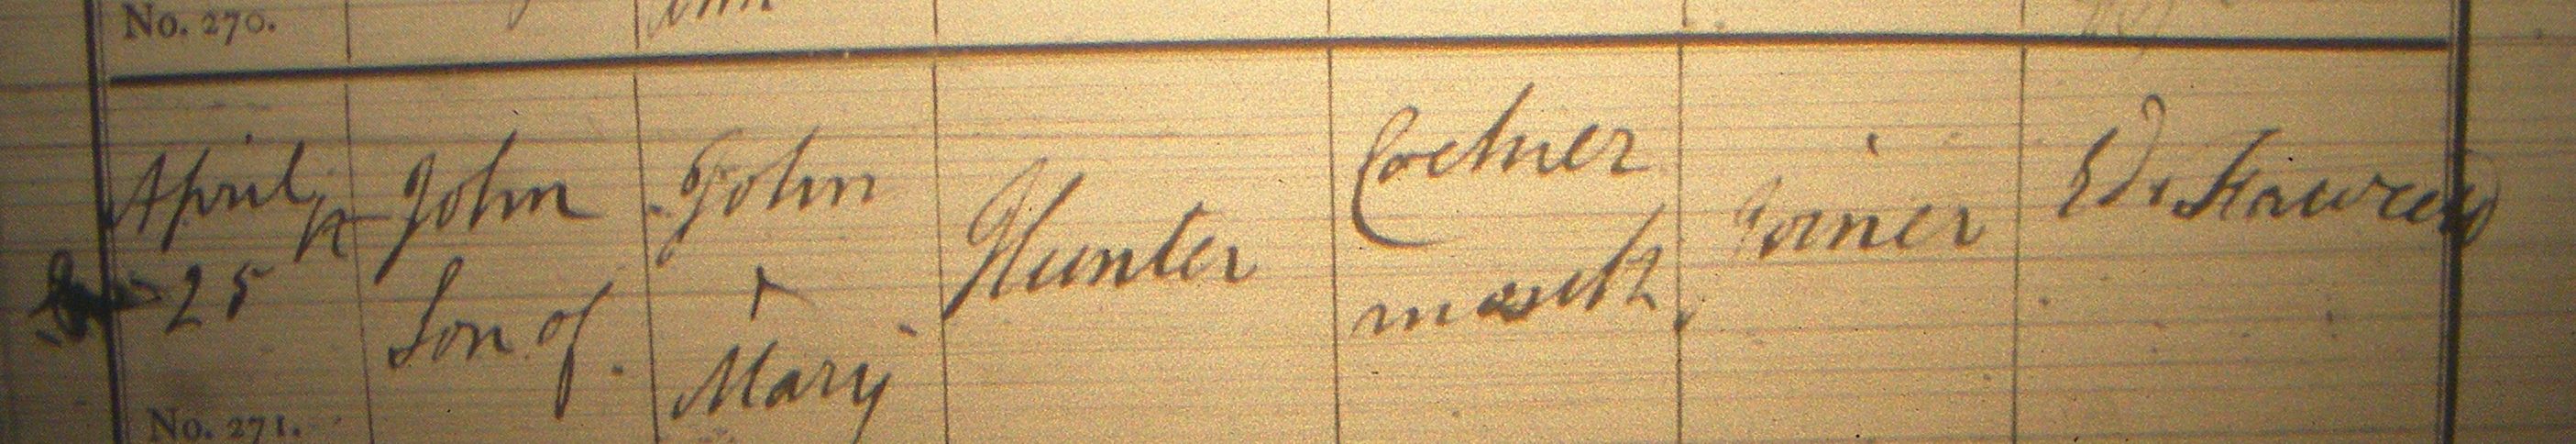 No. 270.
Ann
April
25
John
Son of
John
+
Mary
Hunter
Cocker
mouth
Joiner
Ed. Fawcett
No. 271.